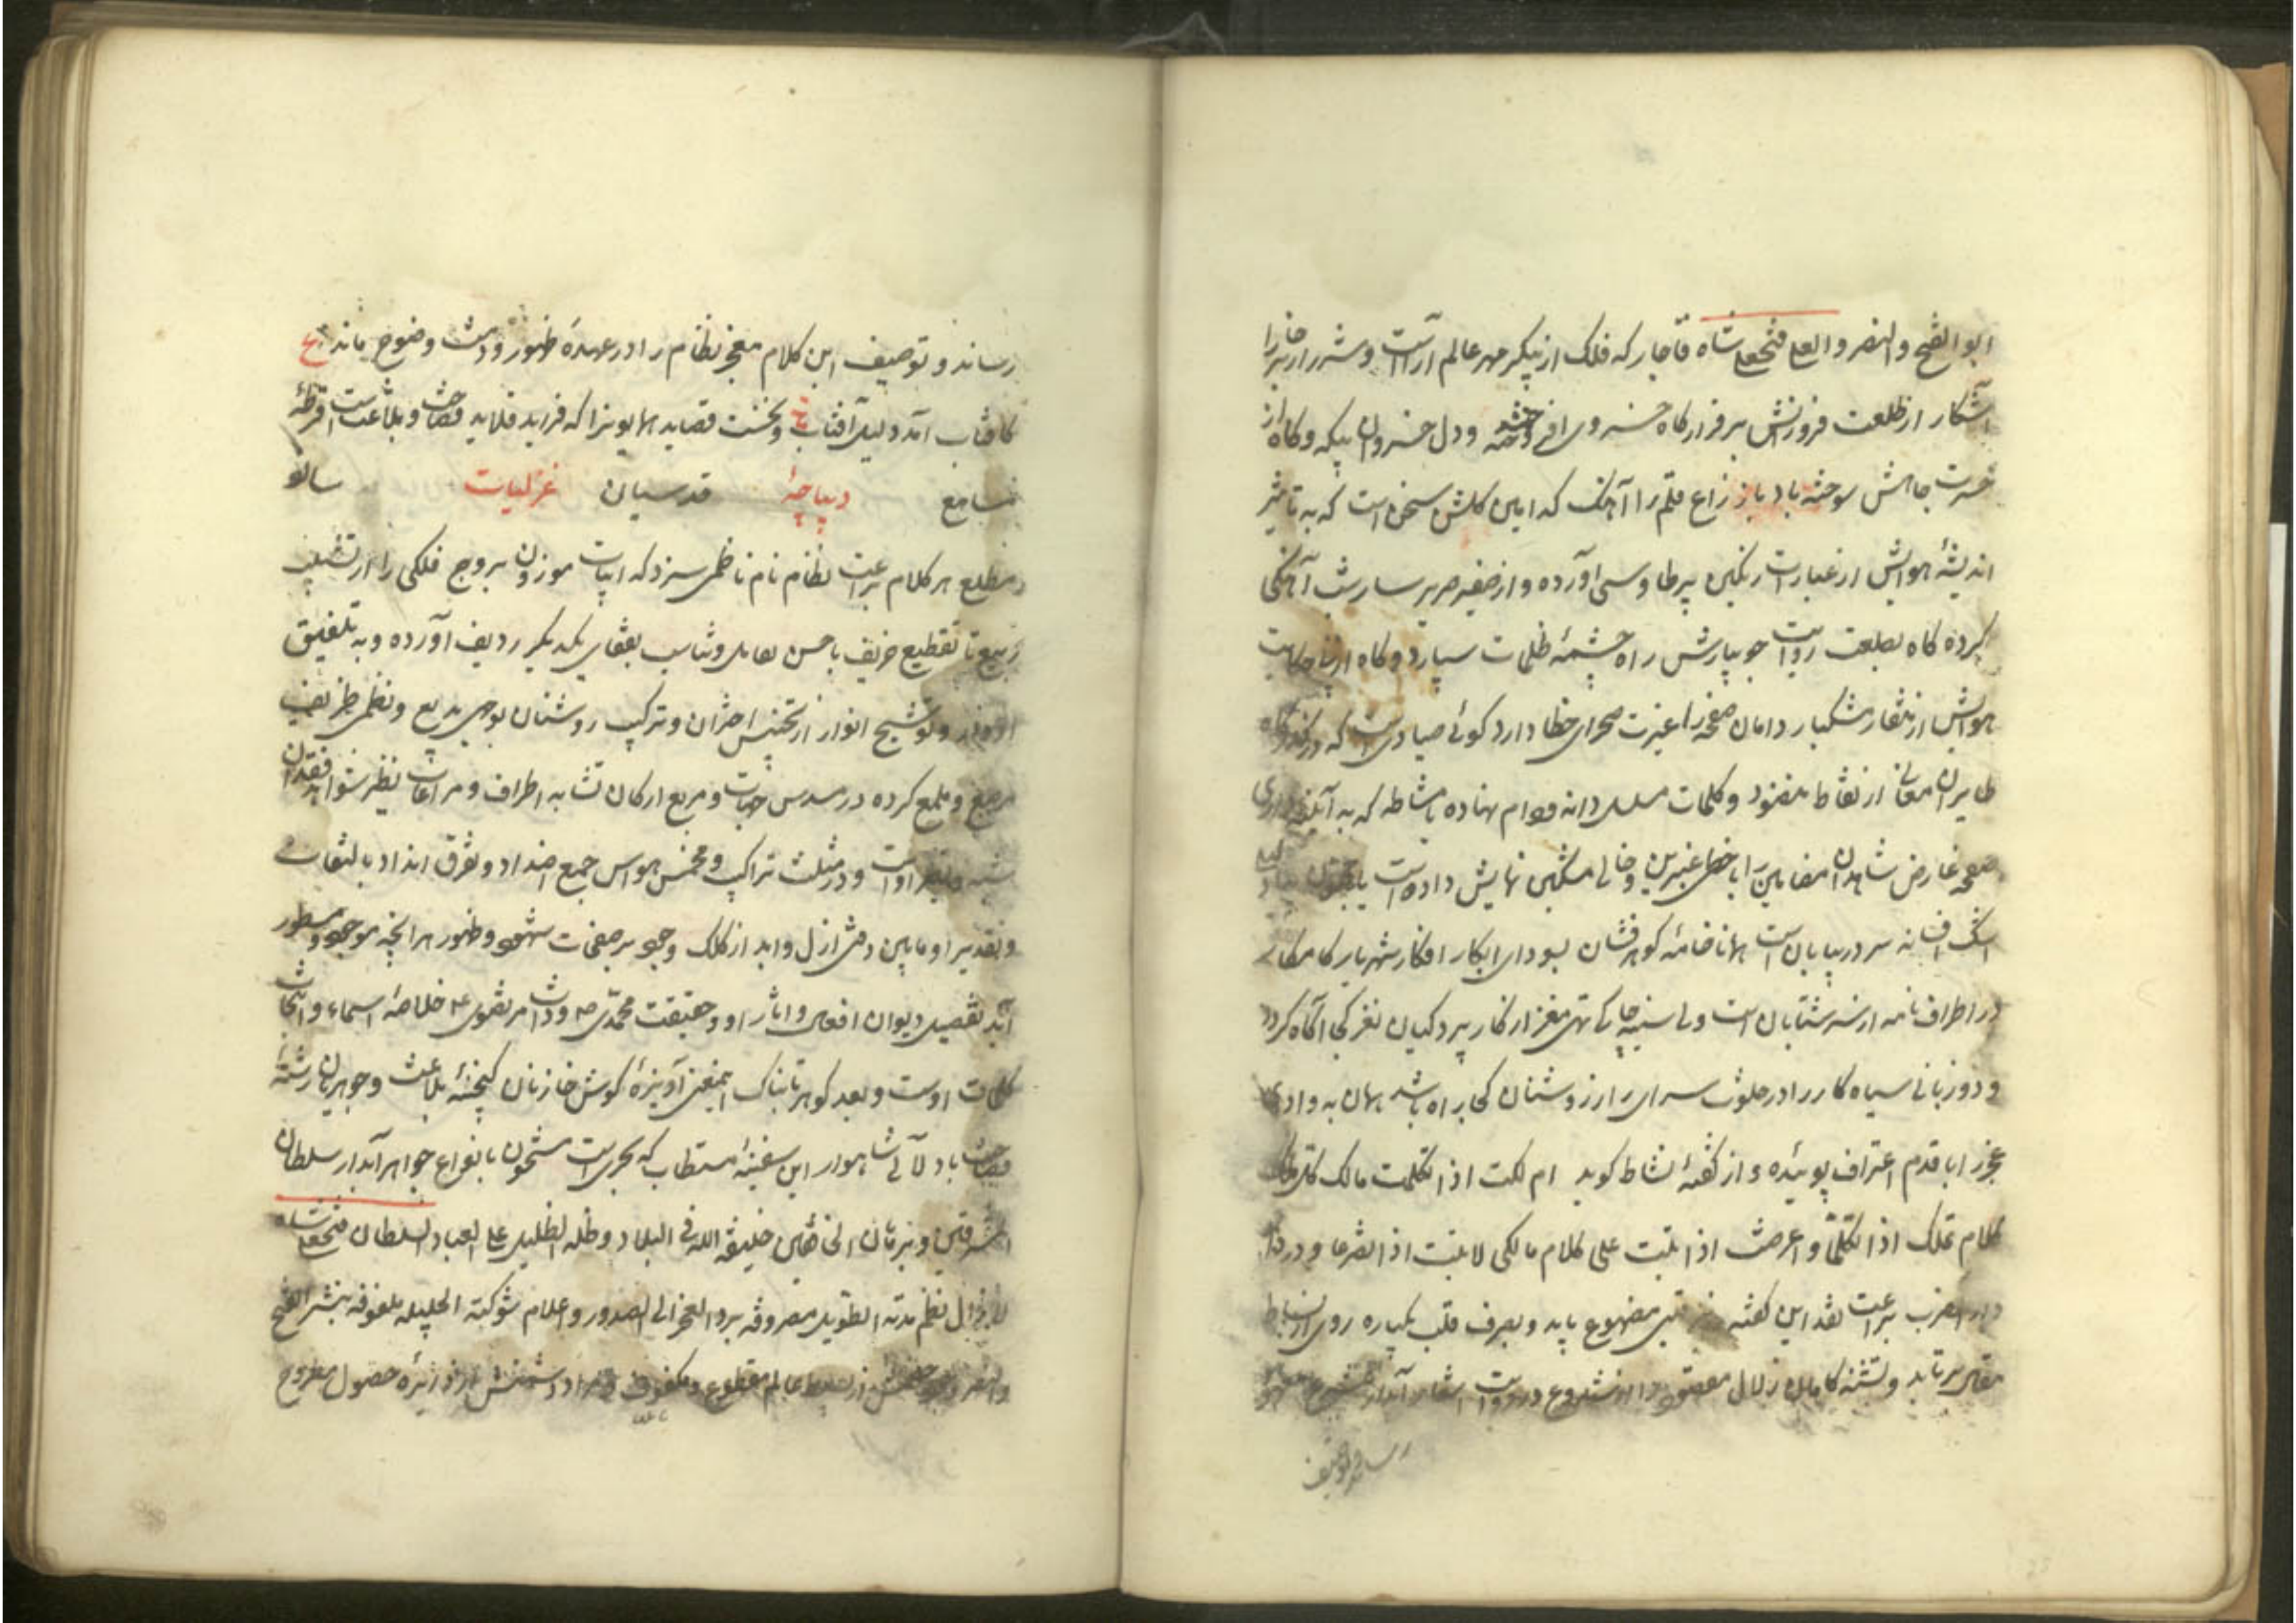 ابو الفتح والنصر والعلی فتحعلی شاه قاجار که فلک از پیکر مهر عالم آراست و شرر از خارا
آشکار از طلعت فروزانش بر فراز کاه خسروی افروخته و دل خسروان بیکه و کاه از
حسرت جاهش سوخته باد باز زاغ قلم را آهنک کدامین کلشن سخن است که به تأثیر
اندیشهٔ هوایش از عبارات رنکین پر طاوسی آورده و از صفیر صریر ساز شب آهنکی
کرده کاه بطلعت روایت جویبارش راه چشمهٔ ظلمات سپارد و کاه از
هوایش از منقار مشکبار دامان صفحه را غیرت صحرای خطا دارد کوئی صیادی است که در
طایران معانی از نقاط منضود و کلمات مسلسل دانه و دام نهاده یا مشاطه که به
صفحه عارض شاهدان مضامین را با خطی عنبرین و خالی مشکین نمایش داده است یا
اشک افسانه سر در بیابان است همانا خامهٔ کوهرفشان بسودای ابکار افکار شهریار کامکار
در اطراف نامه از سر شتابان است ولی سینه چاکی تهی مغز از کار پردکیان نغز کی آکاه کردد
و دو زبانی سیاه کار را در خلوت سرای راز روشنان کجا راه باشد همان به وادی
عجز را با قدم اعتراف پوئیده و از کفتهٔ نشاط کوید ام لکت اذا تکلمت مالک کل
کلام تملک اذا تکلما و اعرضت اذا بنت علی کلام مالکی لا بنت اذا تصرما و در
دار الضرب براعت نقد این کفته مضبوع یابد و بصرف قلب یکباره روی از بساط
مقال برتابد و تشنه کامان زلال مقصود را از شروع در روایت اشعار آبدار
رساند و توصیف
رساند و توصیف این کلام معجز نظام را در عهدهٔ ظهور و دست وضوح ماند ع
کافتاب آمد دلیل آفتاب و نخست قصاید همایونرا که فراید قلاید فصاحت و بلاغت است قرطهٔ
مسامع دیباچهٔ قدسیان غزلیات سالو
مطلع هر کلام براعت نظام نام ناظمی سزد که ابیات موزون بروج فلکی را از تشبیب
ربیع تا تقطیع خریف باحسن تقابل و تناسب بقفای یکدیکر ردیف آورده و به تلفیق
ادوار و توشیح انوار از تجنیس اختران و ترکیب روشنان بوجهی بدیع و نظمی ظریف
مرصع و ملمع کرده در مسدس جهات و مربع ارکان تشابه اطراف و مراعات نظیر شواهد فقدان
شبیه و نظیر اوست و در مثلث تراکیب و مخمس حواس جمع اضداد و تفرق انداد بالتفات
و تقدیر او مابین دفتی ازل و ابد از کلک وجود بر صفحات شهود و ظهور هر آنچه موجود و مسطور
آید تفصیل دیوان افعال و آثار او و حقیقت محمدی ص و ذات مرتضوی ع خلاصهٔ اسماء و انتخاب
کلمات اوست و بعد کوهر تابناک اینمعنی آویزهٔ کوش خازنان کنجینهٔ بلاغت و جوهریان رشتهٔ
فصاحت باد لآلی شاهوار این سفینهٔ مستطاب که بحری است مشحون بانواع جواهر آبدار سلطان
المشرقین و برهان الخافقین خلیفة الله فی البلاد و ظله الظلیل علی العباد السلطان فتحعلی شاه
لا یزال نظم مدته الطویل مصروفه برد العجز الی الصدور و اعلام شوکته الجلیله ملفوفه بنشر الفتح
والنصر و عالم مقطوع و مکفوف و دشمنش از دائرهٔ حصول مطروح